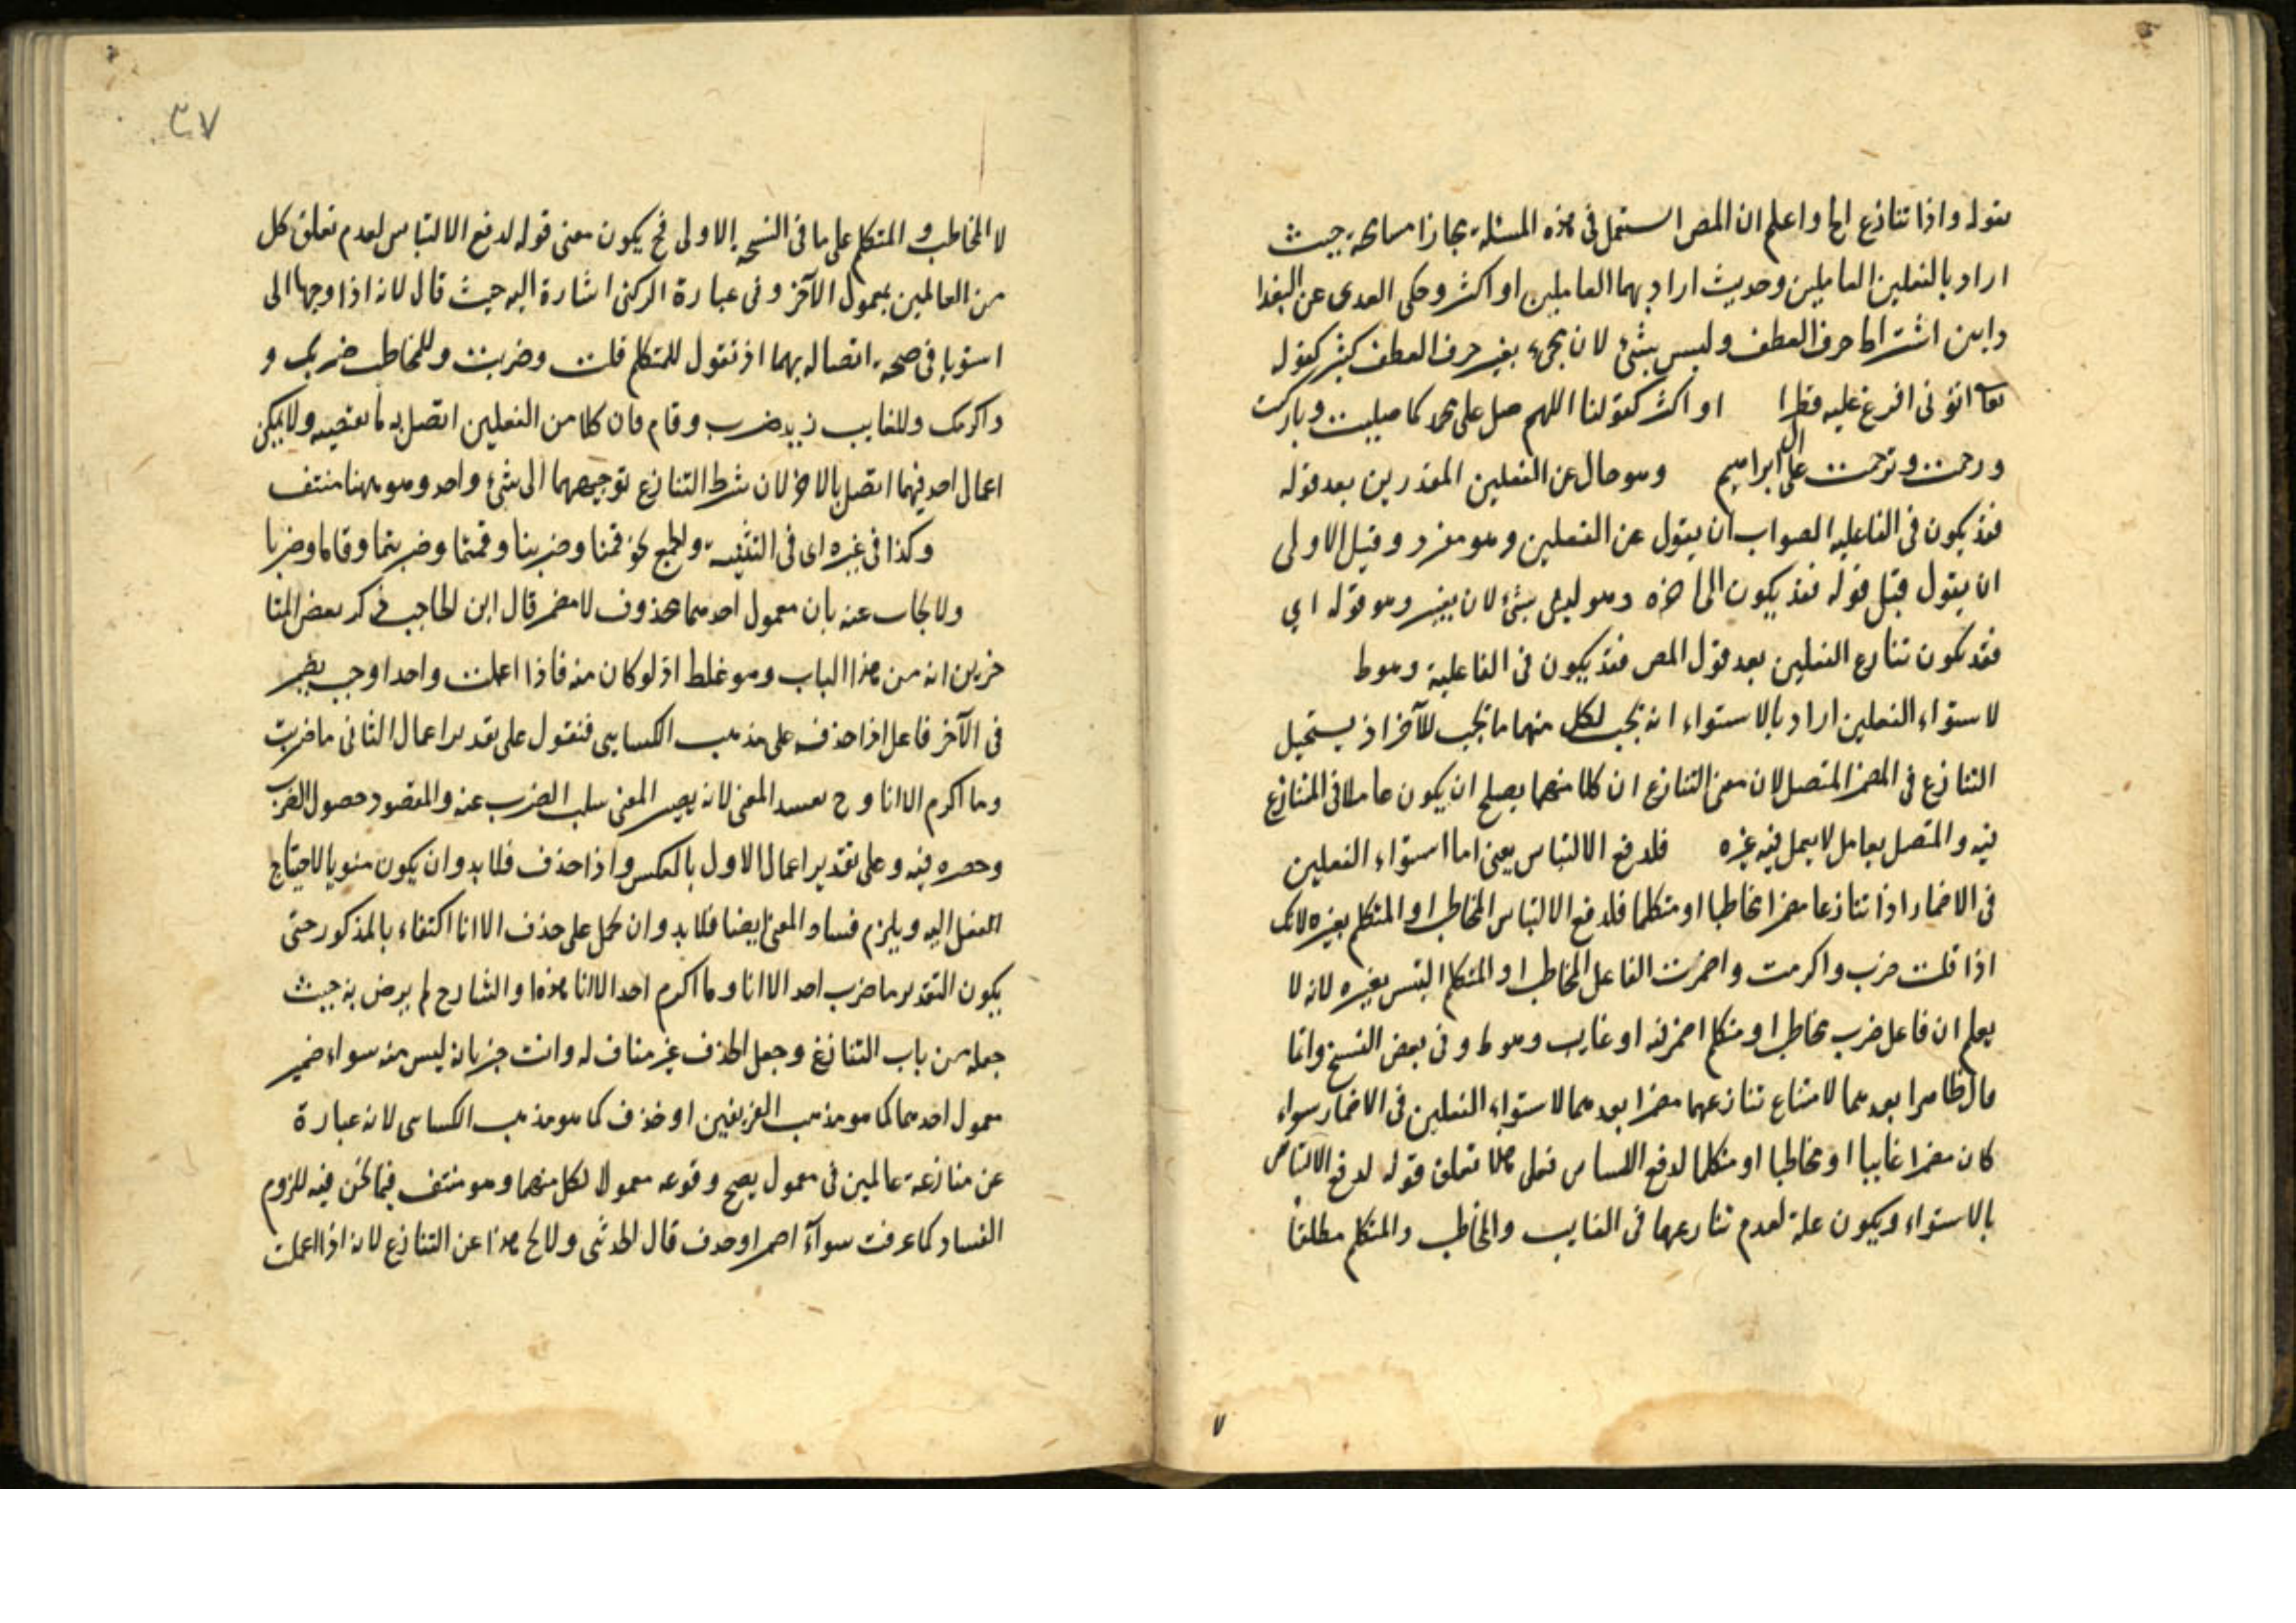 قوله واذا تنازع الخ واعلم ان المص استعمل فى هذه المسئلة مجازا مسامحة حيث
اراد بالفعلين العاملين وحديث اراد بهما العاملين او اكثر وحكى العدى عن البغدا
دابين اشتراط حرف العطف وليس بشئ لان مجئ بغير حرف العطف كثير كقوله
تعا اتونى افرغ عليه قطرا او اكثر كقولنا اللهم صل على محمد كما صليت وباركت
ورحمت وترحمت على ال ابراهيم وهو حال عن الفعلين المقدرين بعد قوله
فقد يكون فى الفاعلية الصواب ان يقول عن الفعلين وهو مفرد وقيل الاولى
ان يقول قبل قوله فقد يكون الى اخره وهو ليس بشئ لان يفسر وهو قوله اى
فقد يكون تنازع الفعلين بعد قول المص فقد يكون فى الفاعلية وهو ط
لاستواء الفعلين اراد بالاستواء انه يجب لكل منهما ما يجب للآخر اذ يستحيل
التنازع فى المضمر المتصل لان معنى التنازع ان كلا منهما يصلح ان يكون عاملا فى المتنازع
فيه والمتصل بعامل لا يعمل فيه غيره فلدفع الالتباس يعنى اما استواء الفعلين
فى الاضمار اذا تنازعا مضمرا مخاطبا او متكلما فلدفع الالتباس المخاطب او المتكلم بغيره لانك
اذا قلت ضرب واكرمت واضمرت الفاعل المخاطب او المتكلم التبس بغيره لانه لا
يعلم ان فاعل ضرب مخاطب او متكلم اضمر فيه او غايب وهو ط وفى بعض النسخ وانما
قال ظاهرا بعدهما لامتناع تنازعهما مضمرا بعدهما لاستواء الفعلين فى الاضمار سواء
كان مضمرا غايبا او مخاطبا او متكلما لدفع الالتباس فعلى هذا تعلق قوله لدفع الالتباس
بالاستواء ويكون علة لعدم تنازعهما فى الغايب والمخاطب والمتكلم مطلقا
٧
٣٧
لا المخاطب والمتكلم على ما فى النسخه الاولى فح يكون معنى قوله لدفع الالتباس لعدم تعلق كل
من العاملين بمعمول الآخر وفى عبارة الركنى اشارة اليه حيث قال لانه اذا وجها الى
استويا فى صحة اتصاله بهما اذ تقول للمتكلم قلت وضربت وللمخاطب ضربك و
واكرمك وللغايب زيد ضرب وقام فان كلا من الفعلين اتصل به ما يقتضيه ولا يمكن
اعمال احد فيهما اتصل بالاخر لان شرط التنازع توجيههما الى شئ واحد وهو ههنا منتف
وكذا فى غيره اى فى التثنية والجمع نحو قمنا وضربنا وقمتما وضربتما وقاما وضربا
ولا يجاب عنه بان معمول احدهما محذوف لا مضمر قال ابن الحاجب ذكر بعض المتا
خرين انه من هذا الباب وهو غلط اذ لو كان منه فاذا اعملت واحدا وجب يضمر
فى الآخر فاعل اذا حذف على مذهب الكسايى فنقول على تقدير اعمال الثانى ما ضربت
وما اكرم الا انا وح يفسد المعنى لانه يصير المعنى سلب الضرب عنه والمقصود حصول الضرب
وحصره فيه وعلى تقدير اعمال الاول بالعكس واذا حذف فلا بد وان يكون منويا لاحتياج
الفعل اليه ويلزم فساد المعنى ايضا فلا بد وان يحمل على حذف الا انا اكتفاء بالمذكور حتى
يكون التقدير ما ضرب احد الا انا وما اكرم احد الا انا هذا والشارح لم يرض به حيث
جعله من باب التنازع وجعل الحذف غير مناف له وانت خبير بانه ليس منه سواء ضمير
معمول احدهما كما هو مذهب الفريقين او حذف كما هو مذهب الكسائى لانه عبارة
عن منازعة عاملين فى معمول يصح وقوعه معمولا لكل منهما وهو منتف فيما نحن فيه للزوم
الفساد كما عرفت سوآء اضمر او حذف قال الحدثى ولا يخ هذا عن التنازع لانه اذا اعملت